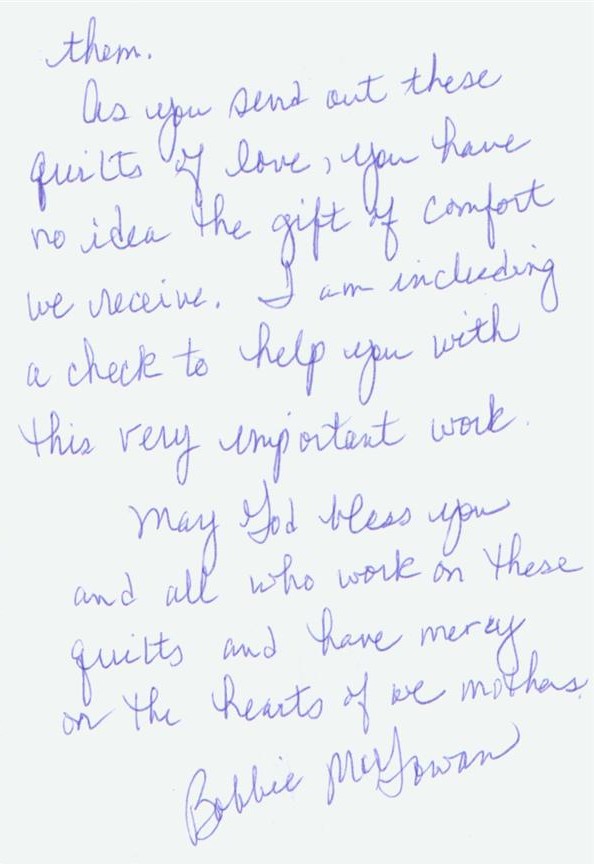 them.
As you send out these
quilts of love, you have
no idea the gift of comfort
we receive. I am including
a check to help you with
this very important work.
May God bless you
and all who work on these
quilts and have mercy
on the hearts of we mothers.
Bobbie McGowan